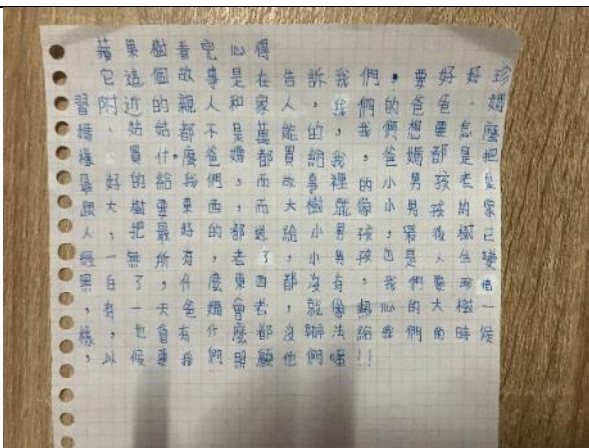 蘋果樹看完心得
它這個故事是在告訴我們，要好好珍
習附近的親人和家人，我們的爸爸、媽
媽、姑姑都不是萬能的，我們想要怎麼
樣買什麼爸媽都買給我，爸媽都是把
最好的給我們，而故事裡的小男孩老是
跟大樹要東西，而大樹就像小男孩的家
人，把最好的都送給小男孩，最後樹已
經一無所有，老了，小男孩也是人生變
黑白了，什麼東西都沒有，我們要珍惜
，有一天爸媽會老，就像熱心的大樹一
樣，也會有什麼都沒辦法給我們的時候
，以候要我們照顧他們喔!!